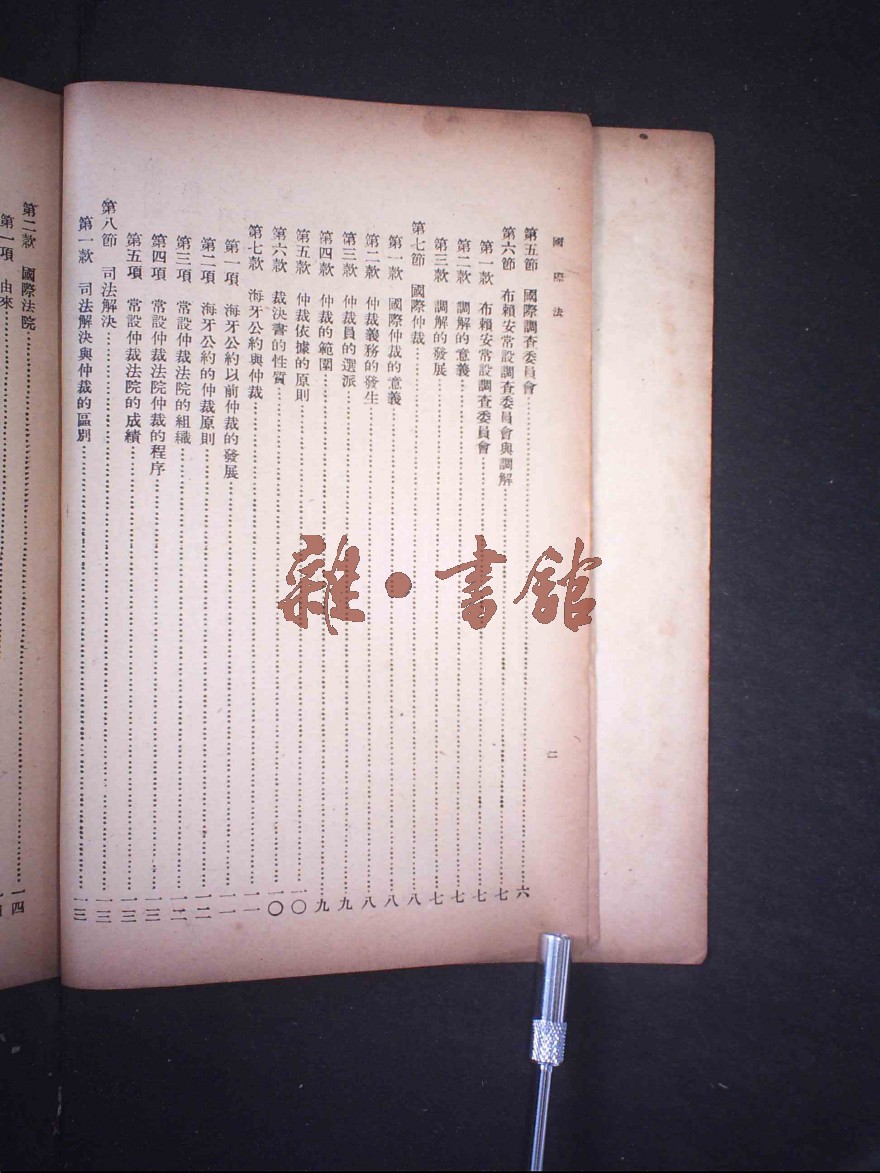 國際法
二
第五節 國際調查委員會……六
第六節 布賴安常設調查委員會與調解……七
第一款 布賴安常設調查委員會……七
第二款 調解的意義……七
第三款 調解的發展……七
第七節 國際仲裁……八
第一款 國際仲裁的意義……八
第二款 仲裁義務的發生……八
第三款 仲裁員的選派……九
第四款 仲裁的範圍……九
第五款 仲裁依據的原則……一〇
第六款 裁決書的性質……一〇
第七款 海牙公約與仲裁……一一
第一項 海牙公約以前仲裁的發展……一一
第二項 海牙公約的仲裁原則……一二
第三項 常設仲裁法院的組織……一二
第四項 常設仲裁法院仲裁的程序……一三
第五項 常設仲裁法院的成績……一三
第八節 司法解決……一三
第一款 司法解決與仲裁的區別……一三
第二款 國際法院……一四
第一項 由來……
雜·書館